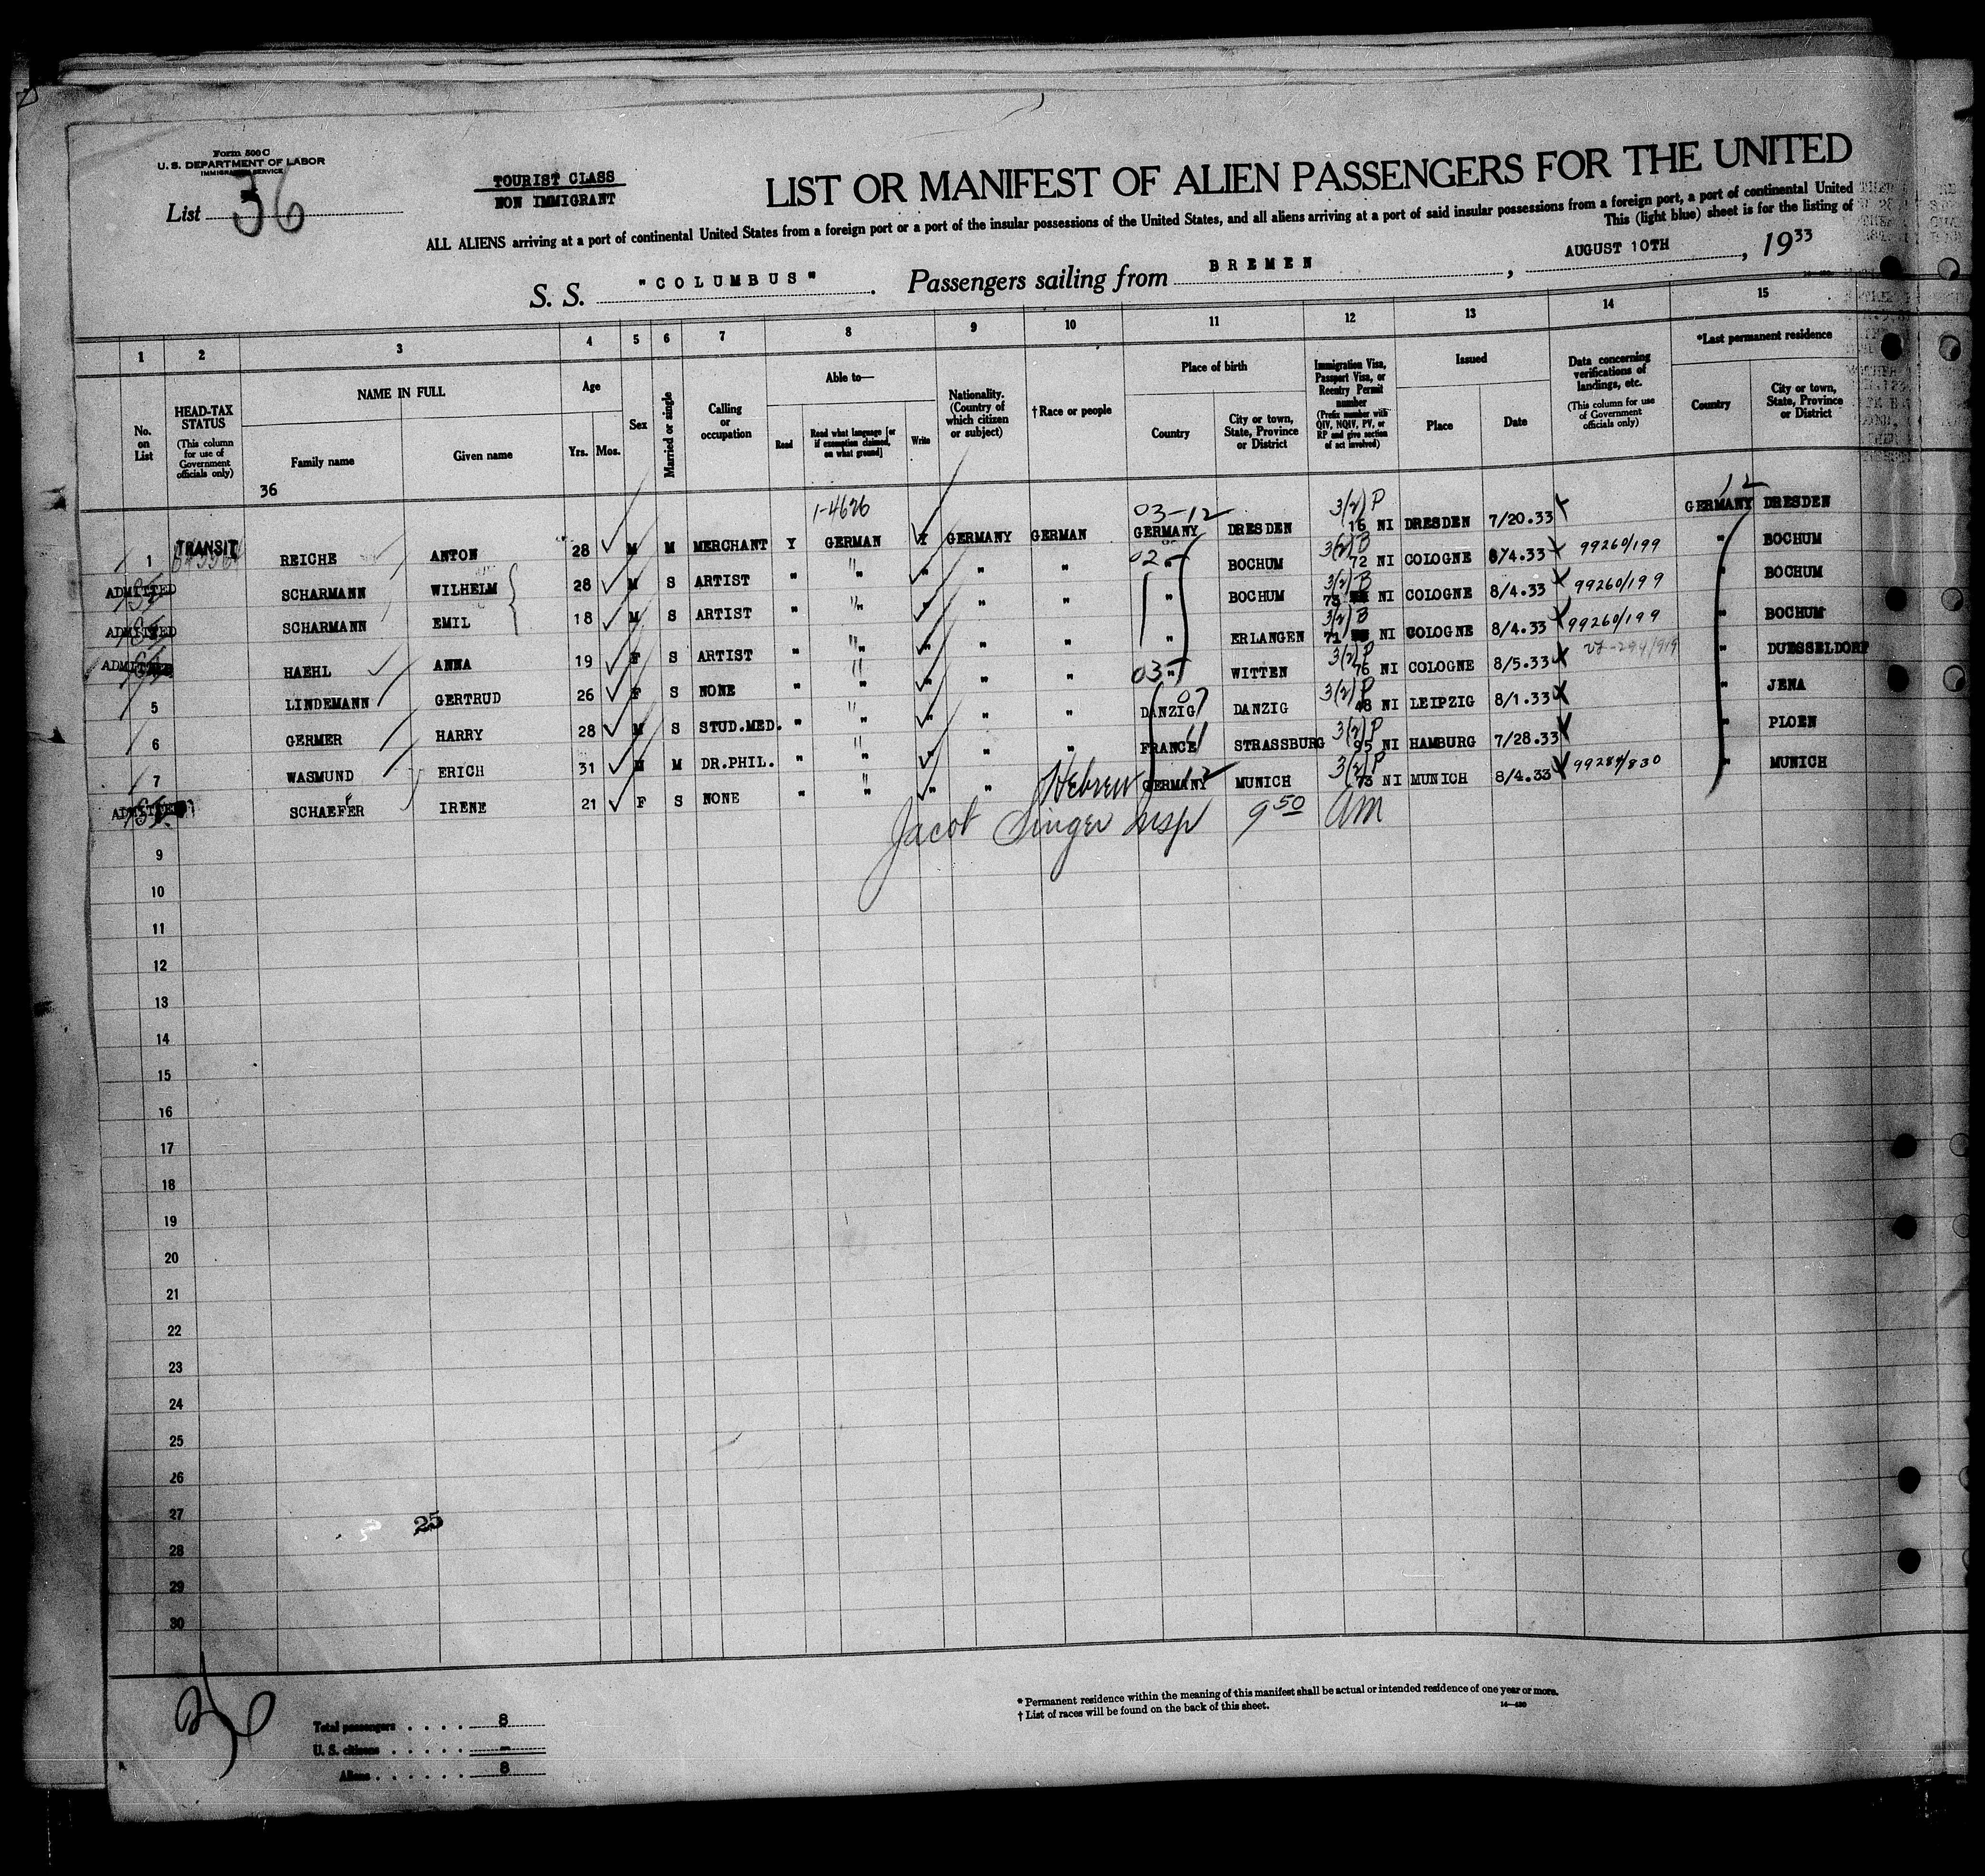 Form 500 C
U. S. DEPARTMENT OF LABOR
IMMIGRATION SERVICE
List 36
TOURIST CLASS
NON IMMIGRANT
LIST OR MANIFEST OF ALIEN PASSENGERS FOR THE UNITED
ALL ALIENS arriving at a port of continental United States from a foreign port or a port of the insular possessions of the United States, and all aliens arriving at a port of said insular possessions from a foreign port, a port of continental United
This (light blue) sheet is for the listing of
S. S. "COLUMBUS". Passengers sailing from BREMEN, AUGUST 10TH, 1933
1 2 3 4 5 6 7 8 9 10 11 12 13 14 15
No. on List
HEAD-TAX STATUS
(This column for use of Government officials only)
NAME IN FULL
Family name
Given name
Age
Yrs. Mos.
Sex
Married or single
Calling or occupation
Able to—
Read
Read what language [or if exemption claimed, on what ground]
Write
Nationality. (Country of which citizen or subject)
†Race or people
Place of birth
Country
City or town, State, Province or District
Immigration Visa, Passport Visa, or Reentry Permit number
(Prefix number with QIV, NQIV, PV, or RP and give section of act involved)
Issued
Place
Date
Data concerning verifications of landings, etc.
(This column for use of Government officials only)
*Last permanent residence
Country
City or town, State, Province or District
36
1-4626 03-12 3(2)P 12
1 TRANSIT REICHE ANTON 28 M M MERCHANT Y GERMAN Y GERMANY GERMAN GERMANY DRESDEN 16 NI DRESDEN 7/20.33 GERMANY DRESDEN
ADMITTED SCHARMANN WILHELM 28 M S ARTIST " " " " " 02 " BOCHUM 3(2)B 72 NI COLOGNE 8/4.33 99260/199 " BOCHUM
ADMITTED SCHARMANN EMIL 18 M S ARTIST " " " " " " BOCHUM 3(2)B 73 NI COLOGNE 8/4.33 99260/199 " BOCHUM
ADMITTED HAEHL ANNA 19 F S ARTIST " " " " " " ERLANGEN 3(2)B 71 NI COLOGNE 8/4.33 99260/199 " BOCHUM
5 LINDEMANN GERTRUD 26 F S NONE " " " " " 03 " WITTEN 3(2)P 76 NI COLOGNE 8/5.33 " DUESSELDORF
6 GERMER HARRY 28 M S STUD.MED. " " " " " DANZIG 07 DANZIG 3(2)P 48 NI LEIPZIG 8/1.33 " JENA
7 WASMUND ERICH 31 M M DR.PHIL. " " " " " FRANCE 11 STRASSBURG 3(2)P 95 NI HAMBURG 7/28.33 " PLOEN
ADMITTED SCHAEFER IRENE 21 F S NONE " " " " Hebrew GERMANY 12 MUNICH 3(2)P 73 NI MUNICH 8/4.33 99284/830 " MUNICH
Jacob Singer Insp 9 50 am
9
10
11
12
13
14
15
16
17
18
19
20
21
22
23
24
25
26
27
25
28
29
30
Total passengers . . . . 8
U. S. citizens . . . . . –
Aliens . . . . . . 8
* Permanent residence within the meaning of this manifest shall be actual or intended residence of one year or more.
† List of races will be found on the back of this sheet.